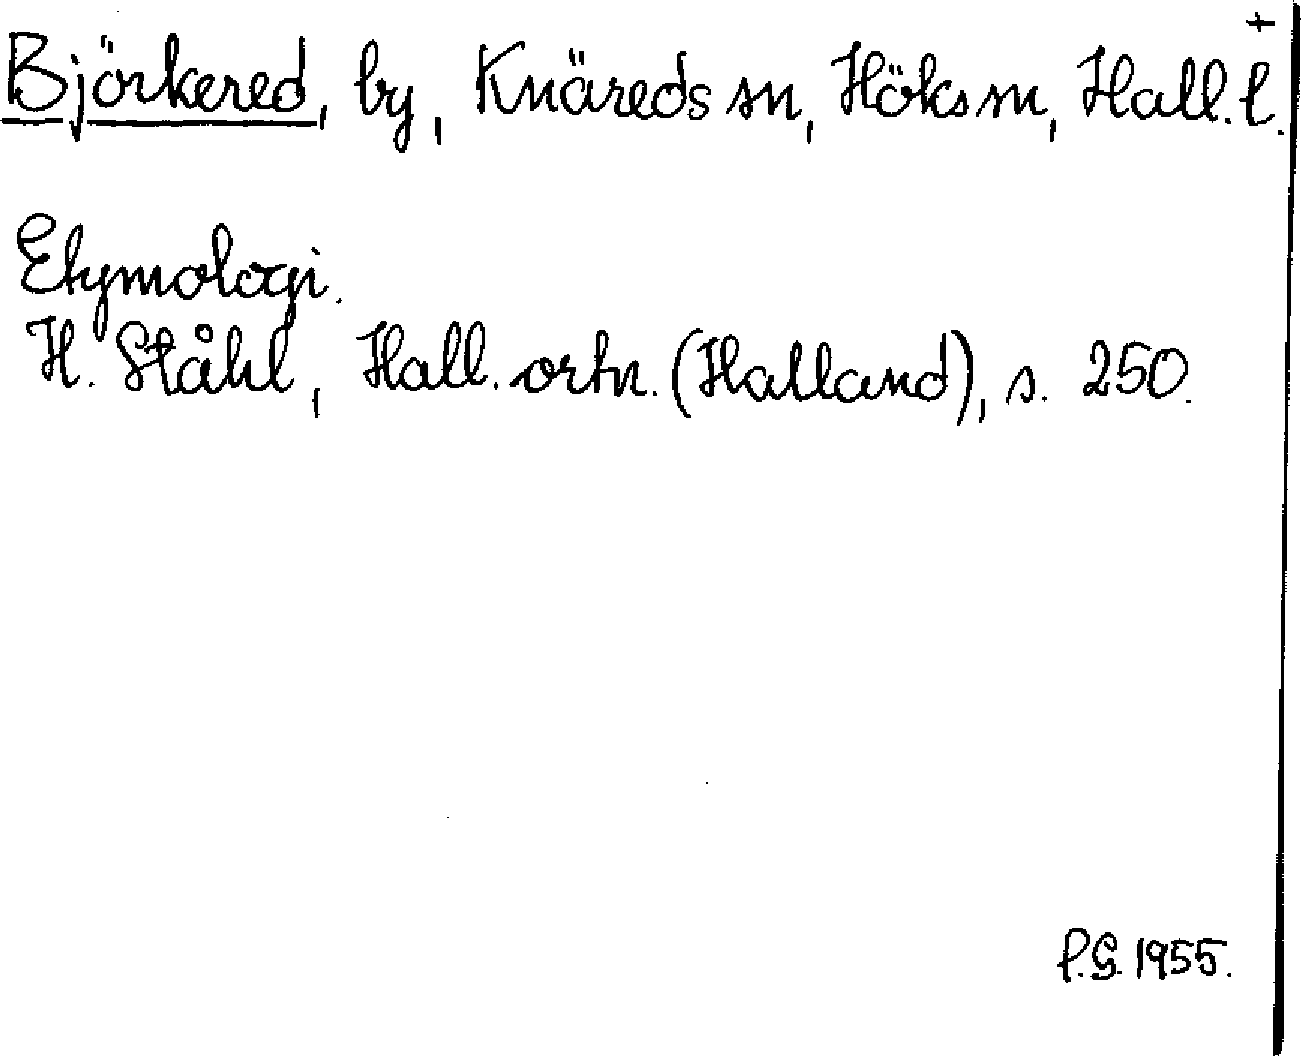 +
Björkered, by, Knäreds sn, Höks m, Hall. l.
Etymologi.
H. Ståhl, Hall. ortn. (Halland), s. 250.
P.G. 1955.